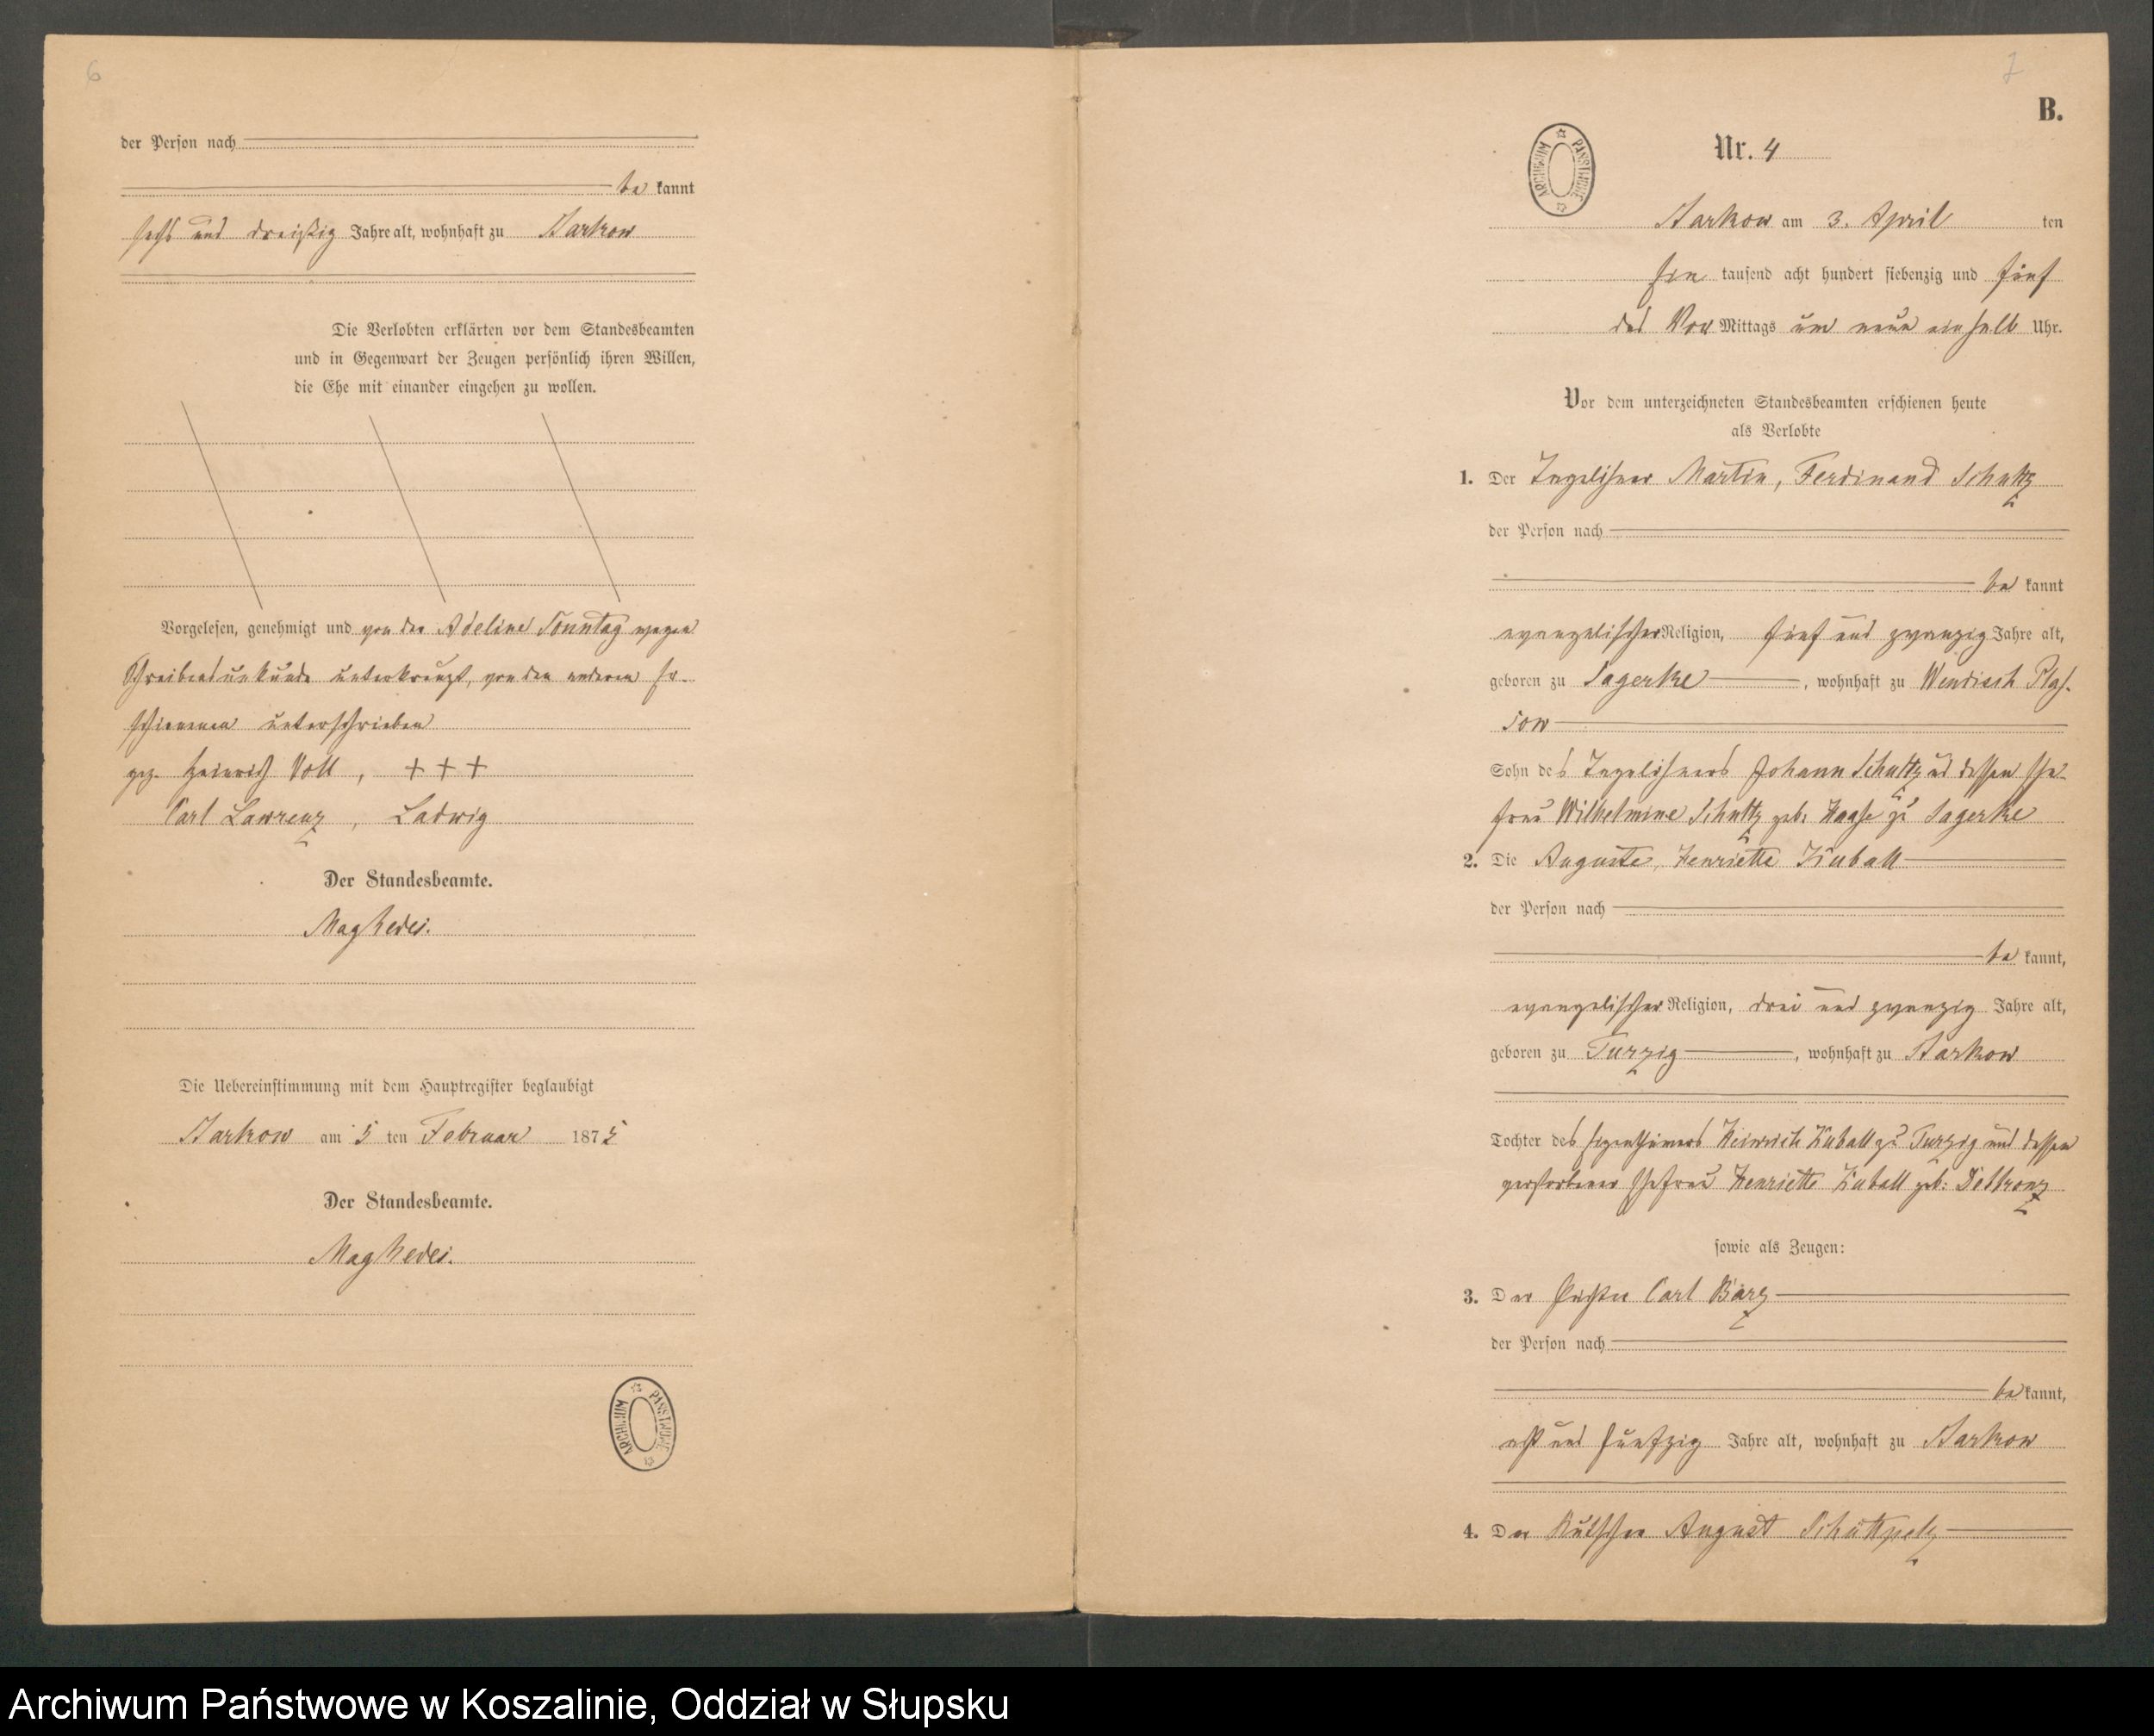 6
der Person nach
be kannt
sechs und dreißig Jahre alt, wohnhaft zu Starkow
Die Verlobten erklärten vor dem Standesbeamten
und in Gegenwart der Zeugen persönlich ihren Willen,
die Ehe mit einander eingehen zu wollen.
Vorgelesen, genehmigt und von der Adeline Sonntag wegen
Schreibensunkunde unterkreuzt, von den anderen Er-
schienenen unterschrieben
gez. Heinrich Voll, + + +
Carl Lawrenz, Ladwig
Der Standesbeamte.
Die Uebereinstimmung mit dem Hauptregister beglaubigt
Starkow am 5 ten Februar 1875
Der Standesbeamte.
ARCHIWUM PAŃSTWOWE
7
B.
ARCHIWUM PAŃSTWOWE
Nr. 4
Starkow am 3. April ten
Ein tausend acht hundert siebenzig und fünf
des Vor Mittags um neun ein halb Uhr.
Vor dem unterzeichneten Standesbeamten erschienen heute
als Verlobte
1. Der Tagelöhner Martin, Ferdinand Schultz
der Person nach
be kannt
evangelischer Religion, fünf und zwanzig Jahre alt,
geboren zu Sagerke, wohnhaft zu Wendisch Plas-
sow
Sohn des Tagelöhners Johann Schultz und dessen Ehe-
frau Wilhelmine Schultz geb. Haase zu Sagerke
2. Die Auguste, Henriette Kuball
der Person nach
be kannt,
evangelischer Religion, drei und zwanzig Jahre alt,
geboren zu Turzig, wohnhaft zu Starkow
Tochter des Eigenthümers Heinrich Kuball zu Turzig und dessen
verstorbener Ehefrau Henriette Kuball geb:
sowie als Zeugen:
3. Der Carl Barz
der Person nach
be kannt,
acht und fünfzig Jahre alt, wohnhaft zu Starkow
4. Der Kutscher August Schüttpelz
Archiwum Państwowe w Koszalinie, Oddział w Słupsku